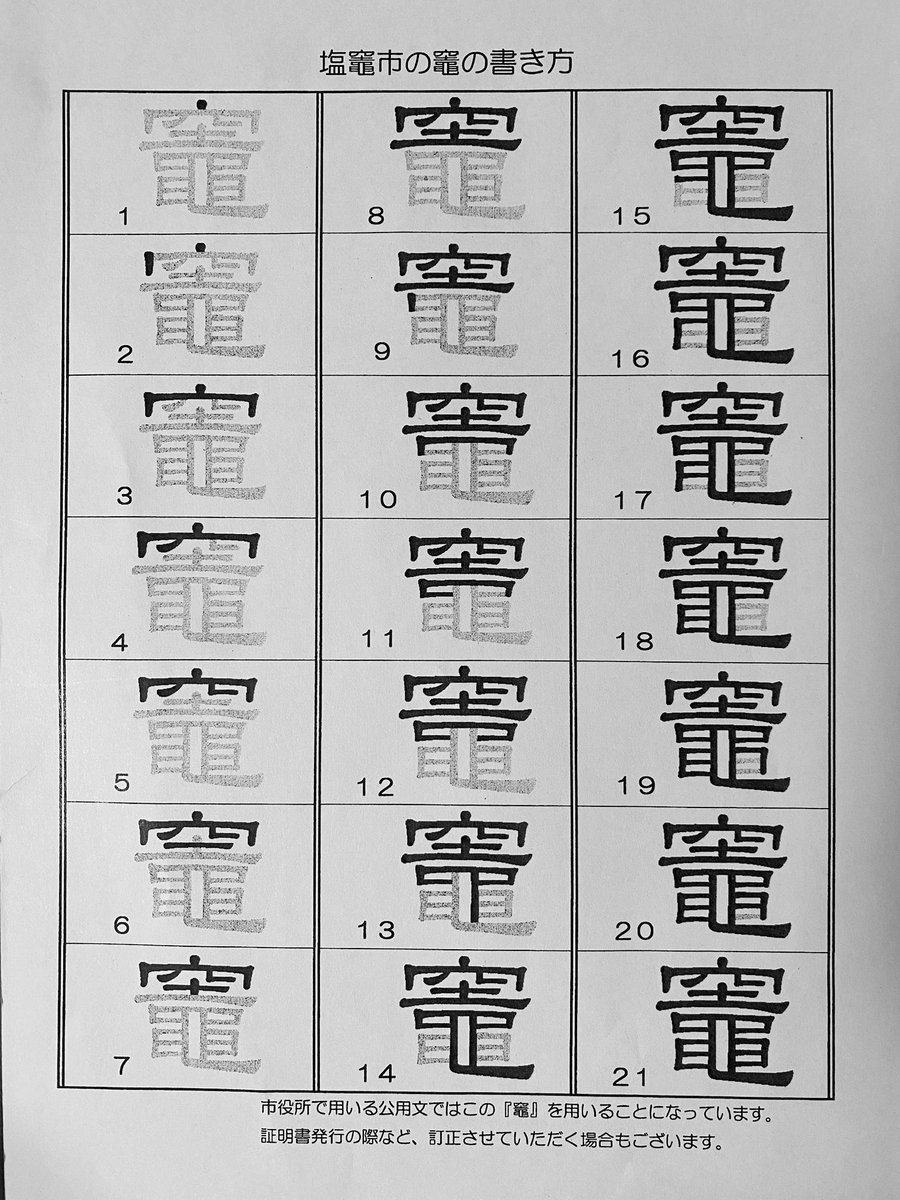 塩竈市の竈の書き方
1
2
3
4
5
6
7
8
9
10
11
12
13
14
15
16
17
18
19
20
21
市役所で用いる公用文ではこの『竈』を用いることになっています。
証明書発行の際など、訂正させていただく場合もございます。